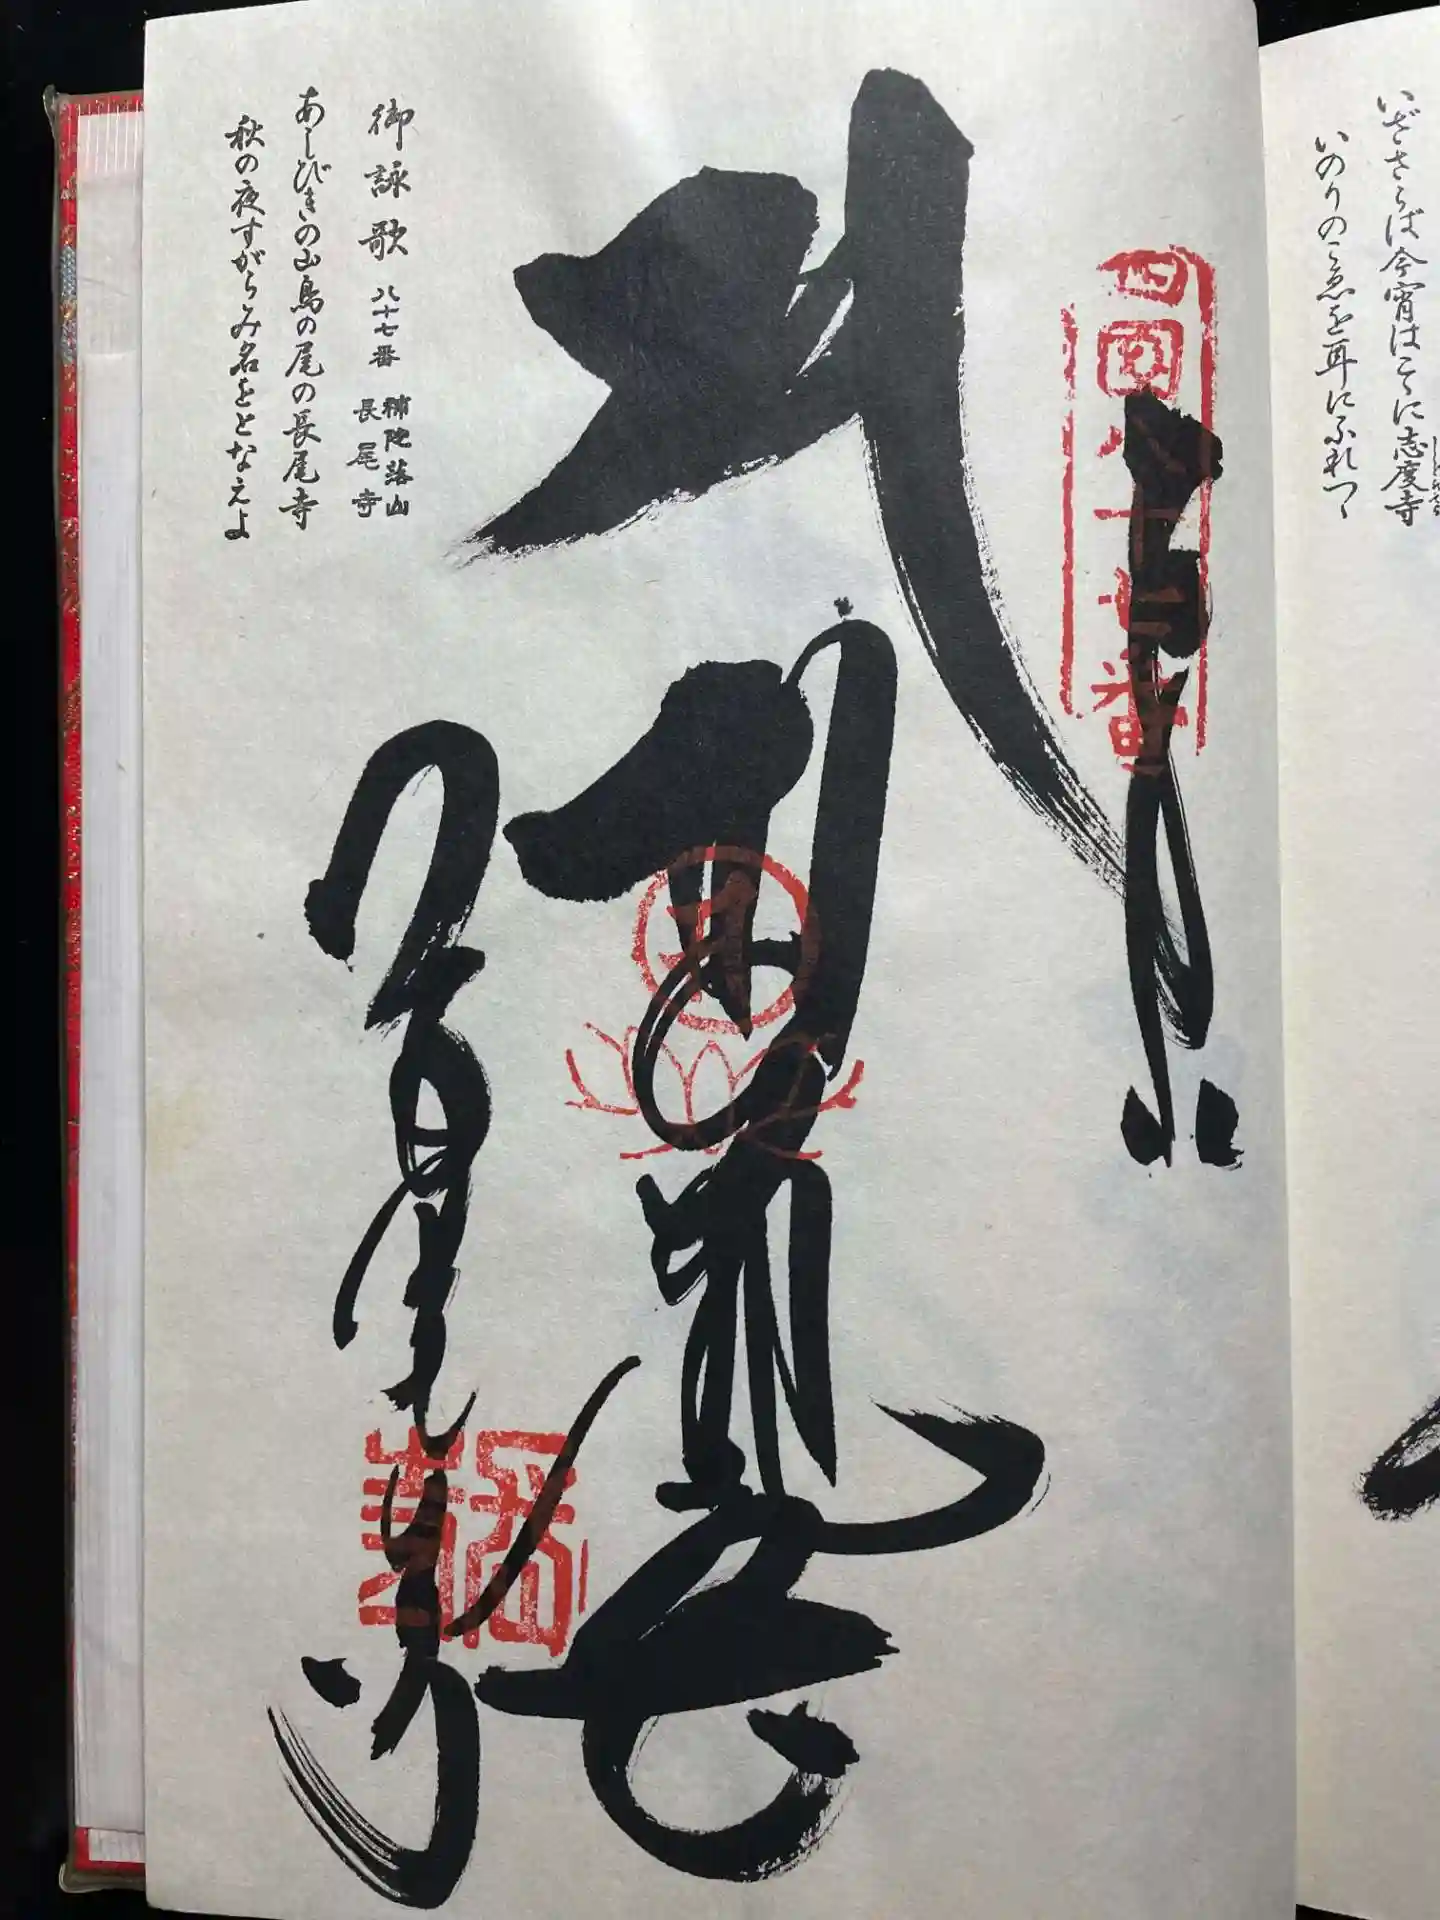 いざさらば今宵はこゝに志度寺
いのりのこゑを耳にふれつゝ
四国八十七番
長尾寺
御詠歌 八十七番 補陀落山 長尾寺
あしびきの山鳥の尾の長尾寺
秋の夜すがらみ名をとなえよ